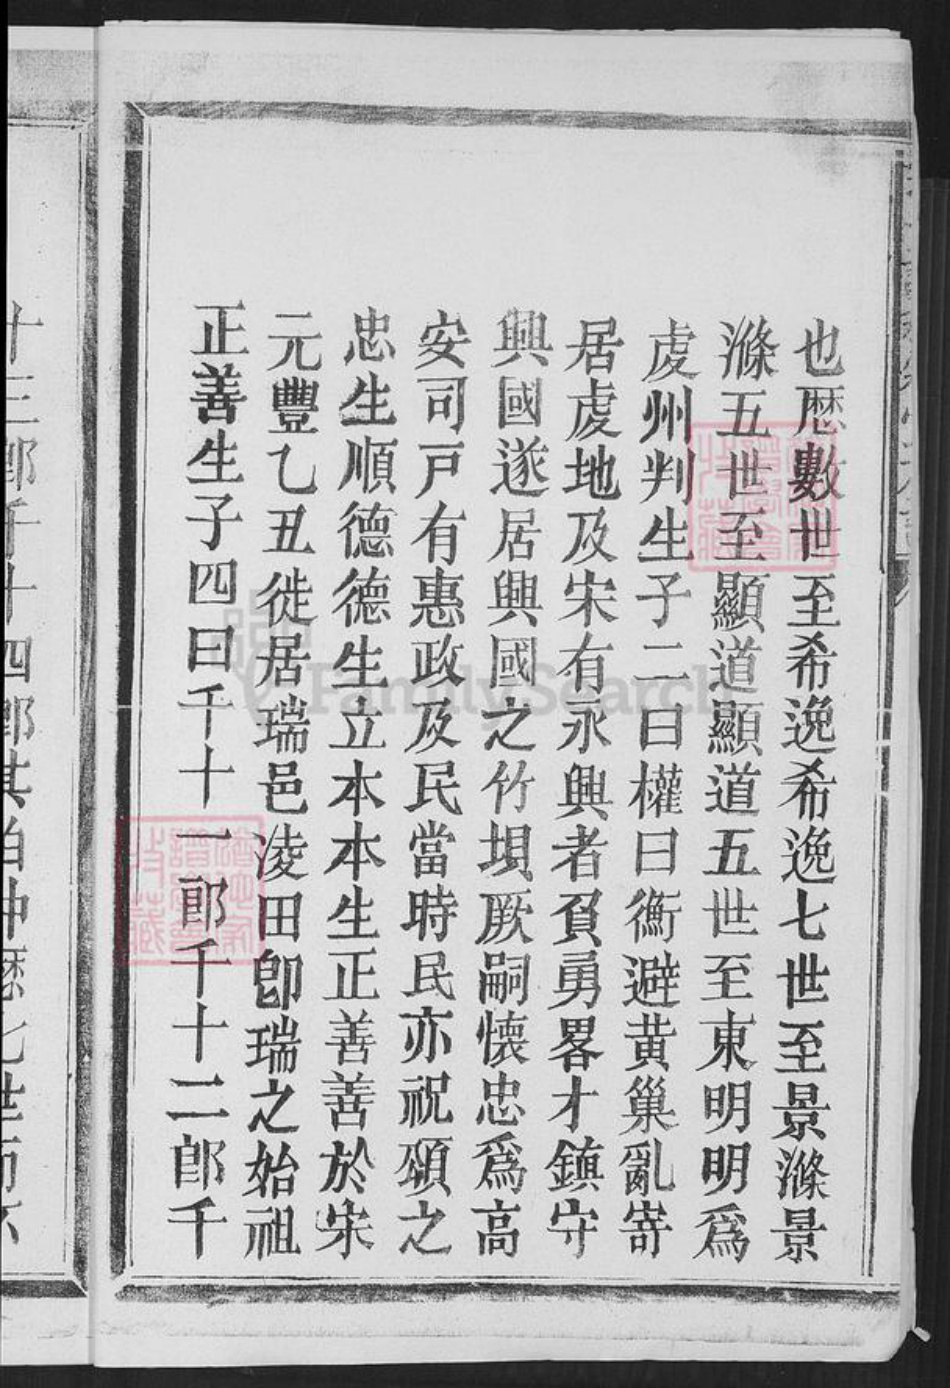 也厯數世至希逸希逸七世至景滌景
滌五世至顯道顯道五世至東明明爲
虔州判生子二曰權曰衡避黄巢亂寄
居虔地及宋有永興者負勇畧才鎮守
興國遂居興國之竹埧厥嗣懷忠爲高
安司戸有惠政及民當時民亦祝頌之
忠生順德德生立本本生正善善於宋
元豐乙丑徙居瑞邑淩田卽瑞之始祖
正善生子四曰千十一郎千十二郎千
十三郎千十四郎其伯仲厯七世而
FamilySearch